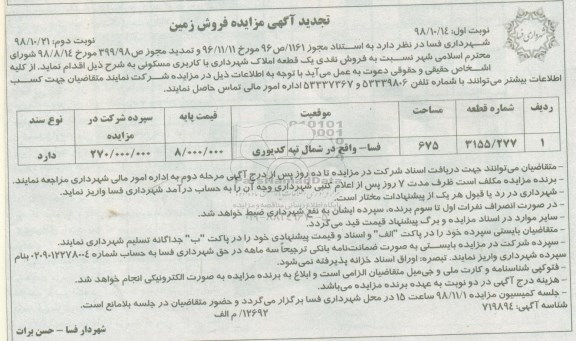 تجدید آگهی مزایده فروش زمین
نوبت اول: ۹۸/۱۰/۱٤
نوبت دوم: ۹۸/۱۰/۲۱
شهرداری فسا در نظر دارد به استناد مجوز ۱۱٦۱/ص ۹٦ مورخ ۹٦/۱۱/۱۱ و تمدید مجوز ص ۳۹۹/۹۸ مورخ ۹۸/۸/۱٤ شورای
محترم اسلامی شهر نسبت به فروش نقدی یک قطعه املاک شهرداری با کاربری مسکونی به شرح ذیل اقدام نماید. از کلیه
اشخاص حقیقی و حقوقی دعوت به عمل می‌آید با توجه به اطلاعات ذیل در مزایده شرکت نمایند متقاضیان جهت کسب
اطلاعات بیشتر می‌توانند با شماره تلفن ۵۳۳۳۹۸۰٦ و ۵۳۳۳۷۳٦۷ اداره امور مالی تماس حاصل نمایند.
ردیف شماره قطعه مساحت موقعیت قیمت پایه سپرده شرکت در مزایده نوع سند
۱ ۳۱۵۵/۲۷۷ ٦۷۵ فسا- واقع در شمال تپه کدیوری ۸/۰۰۰/۰۰۰ ۲۷۰/۰۰۰/۰۰۰ دارد
- متقاضیان می‌توانند جهت دریافت اسناد شرکت در مزایده تا ده روز پس از درج آگهی مرحله دوم به اداره امور مالی شهرداری مراجعه نمایند.
- برنده مزایده مکلف است ظرف مدت ۷ روز پس از اعلام کتبی شهرداری وجه آن را به حساب درآمد شهرداری فسا واریز نماید.
- شهرداری در رد یا قبول هر یک از پیشنهادات مختار است.
- در صورت انصراف نفرات اول تا سوم برنده، سپرده ایشان به نفع شهرداری ضبط خواهد شد.
- سایر موارد در اسناد مزایده و برگ پیشنهاد قیمت قید می‌گردد.
- متقاضیان بایستی سپرده خود را در پاکت "الف" و اسناد و قیمت پیشنهادی خود را در پاکت "ب" جداگانه تسلیم شهرداری نمایند.
- سپرده شرکت در مزایده بایستی به صورت ضمانت‌نامه بانکی ترجیحاً سه ماهه در حق شهرداری فسا به حساب شماره ۰۲۰۹۰۱۲۲۷۸۰۰٤ بنام
سپرده شهرداری واریز نمایند. تبصره: اوراق اسناد خزانه پذیرفته نمی‌شود.
- فتوکپی شناسنامه و کارت ملی و جی‌میل متقاضیان الزامی است و ابلاغ به برنده مزایده به صورت الکترونیکی انجام خواهد شد.
- هزینه درج آگهی در دو نوبت به عهده برنده مزایده می‌باشد.
- جلسه کمیسیون مزایده ۹۸/۱۱/۱ ساعت ۱۵ در محل شهرداری فسا برگزار می‌گردد و حضور متقاضیان در جلسه بلامانع است.
شناسه آگهی: ۷۱۹۸۹٤
۱۲٦۹۲/ م الف
شهردار فسا - حسن برات